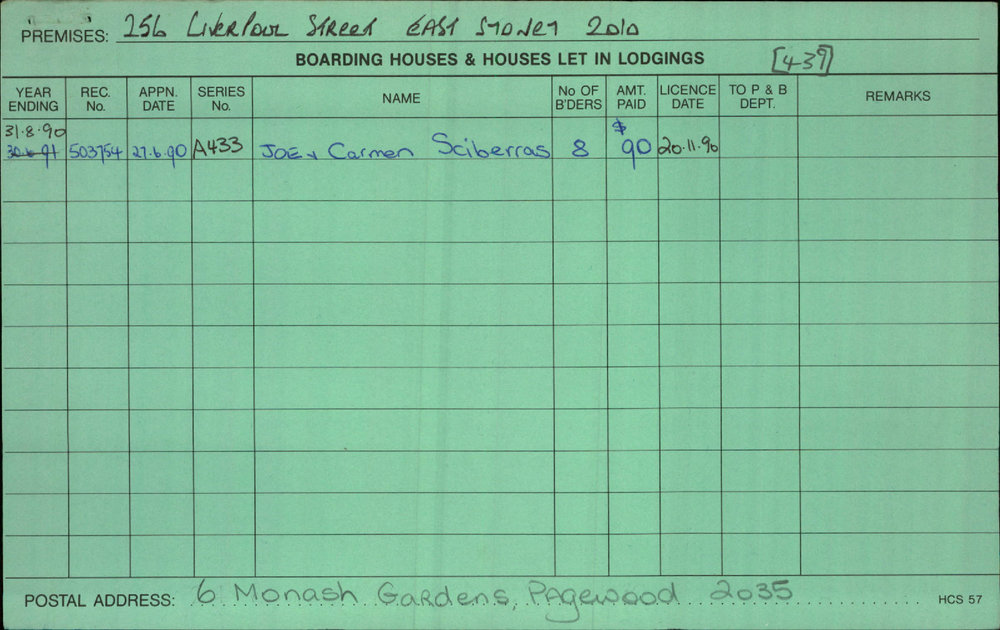 PREMISES: 256 LIVERPOOL STREET EAST SYDNEY 2010
BOARDING HOUSES & HOUSES LET IN LODGINGS [439]
YEAR ENDING REC. No. APPN. DATE SERIES No. NAME No OF B'DERS AMT. PAID LICENCE DATE TO P & B DEPT. REMARKS
31.8.90
30.6.91 503754 27.6.90 A433 JOE + Carmen Sciberras 8 $90 20.11.90
POSTAL ADDRESS: 6 Monash Gardens, Pagewood 2035 HCS 57